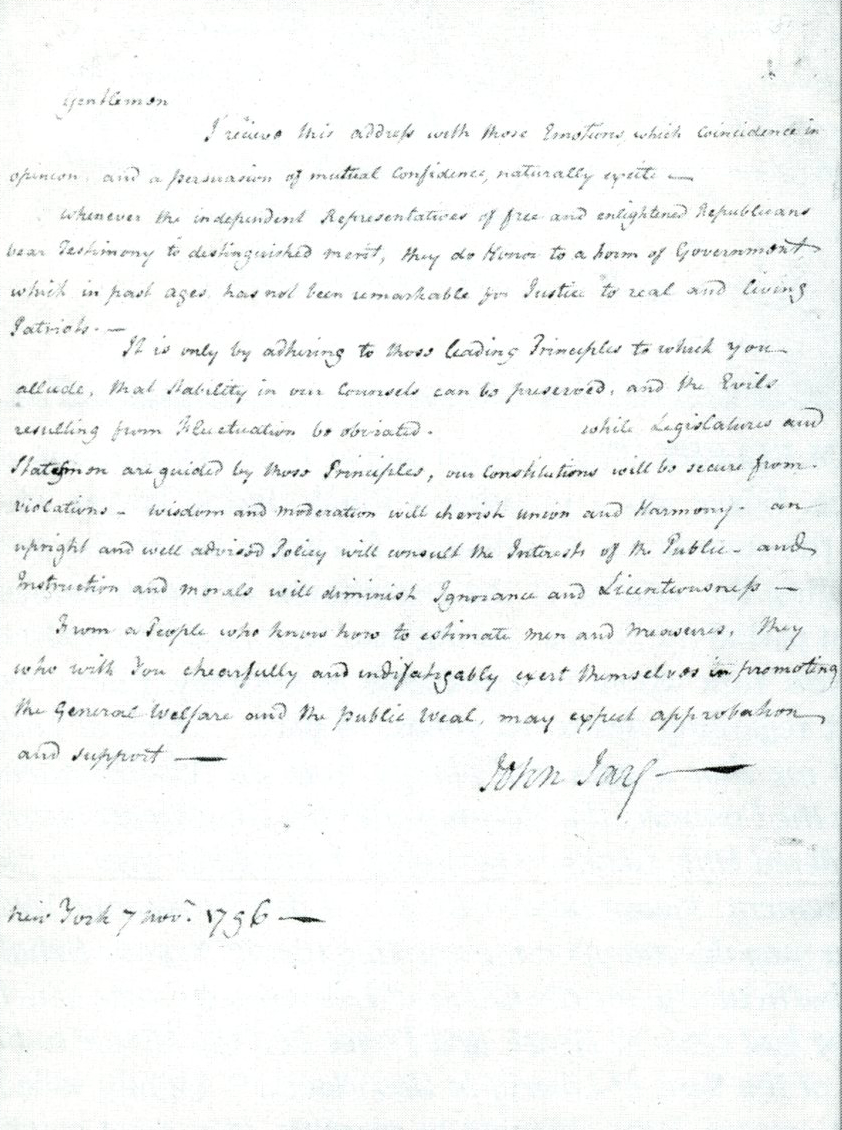 Gentlemen
I recieve this address with those Emotions, which coincidence in
opinion, and a persuasion of mutual Confidence, naturally excite —
Whenever the independent Representatives of free and enlightened Republicans
bear Testimony to distinguished merit, they do Honor to a form of Government
which in past ages, has not been remarkable for Justice to real and living
Patriots. —
It is only by adhering to those leading Principles to which you
allude, that stability in our Counsels can be preserved, and the Evils
resulting from Fluctuation be obviated. while Legislatures and
Statesmen are guided by those Principles, our Constitutions will be secure from
violations — wisdom and moderation will cherish union and Harmony — an
upright and well advised Policy will consult the Interests of the Public — and
Instruction and morals will diminish Ignorance and Licentiousness —
From a People who know how to estimate men and measures, they
who with You chearfully and indefatigably exert themselves in promoting
the General Welfare and the public Weal, may expect approbation
and support —
John Jay —
New York 7 Novr. 1796 —